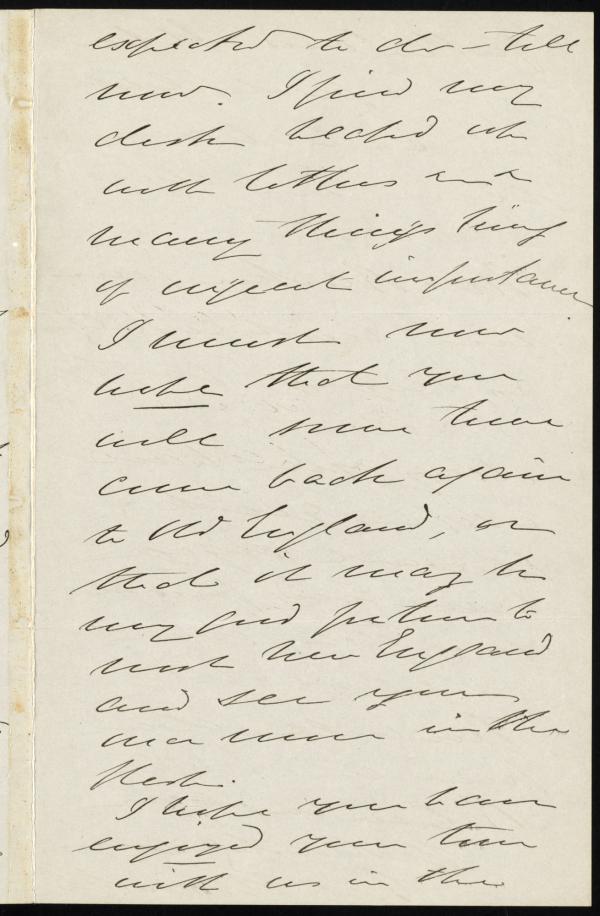 expected to do – till
now. I find my
desk heaped up
with letters and
many things being
of urgent importance
I must now
hope that you
will some time
come back again
to Old England, or
that it may be
my good fortune to
visit New England
and see you
once more in the
flesh.
I hope you have
enjoyed your time
with us in the